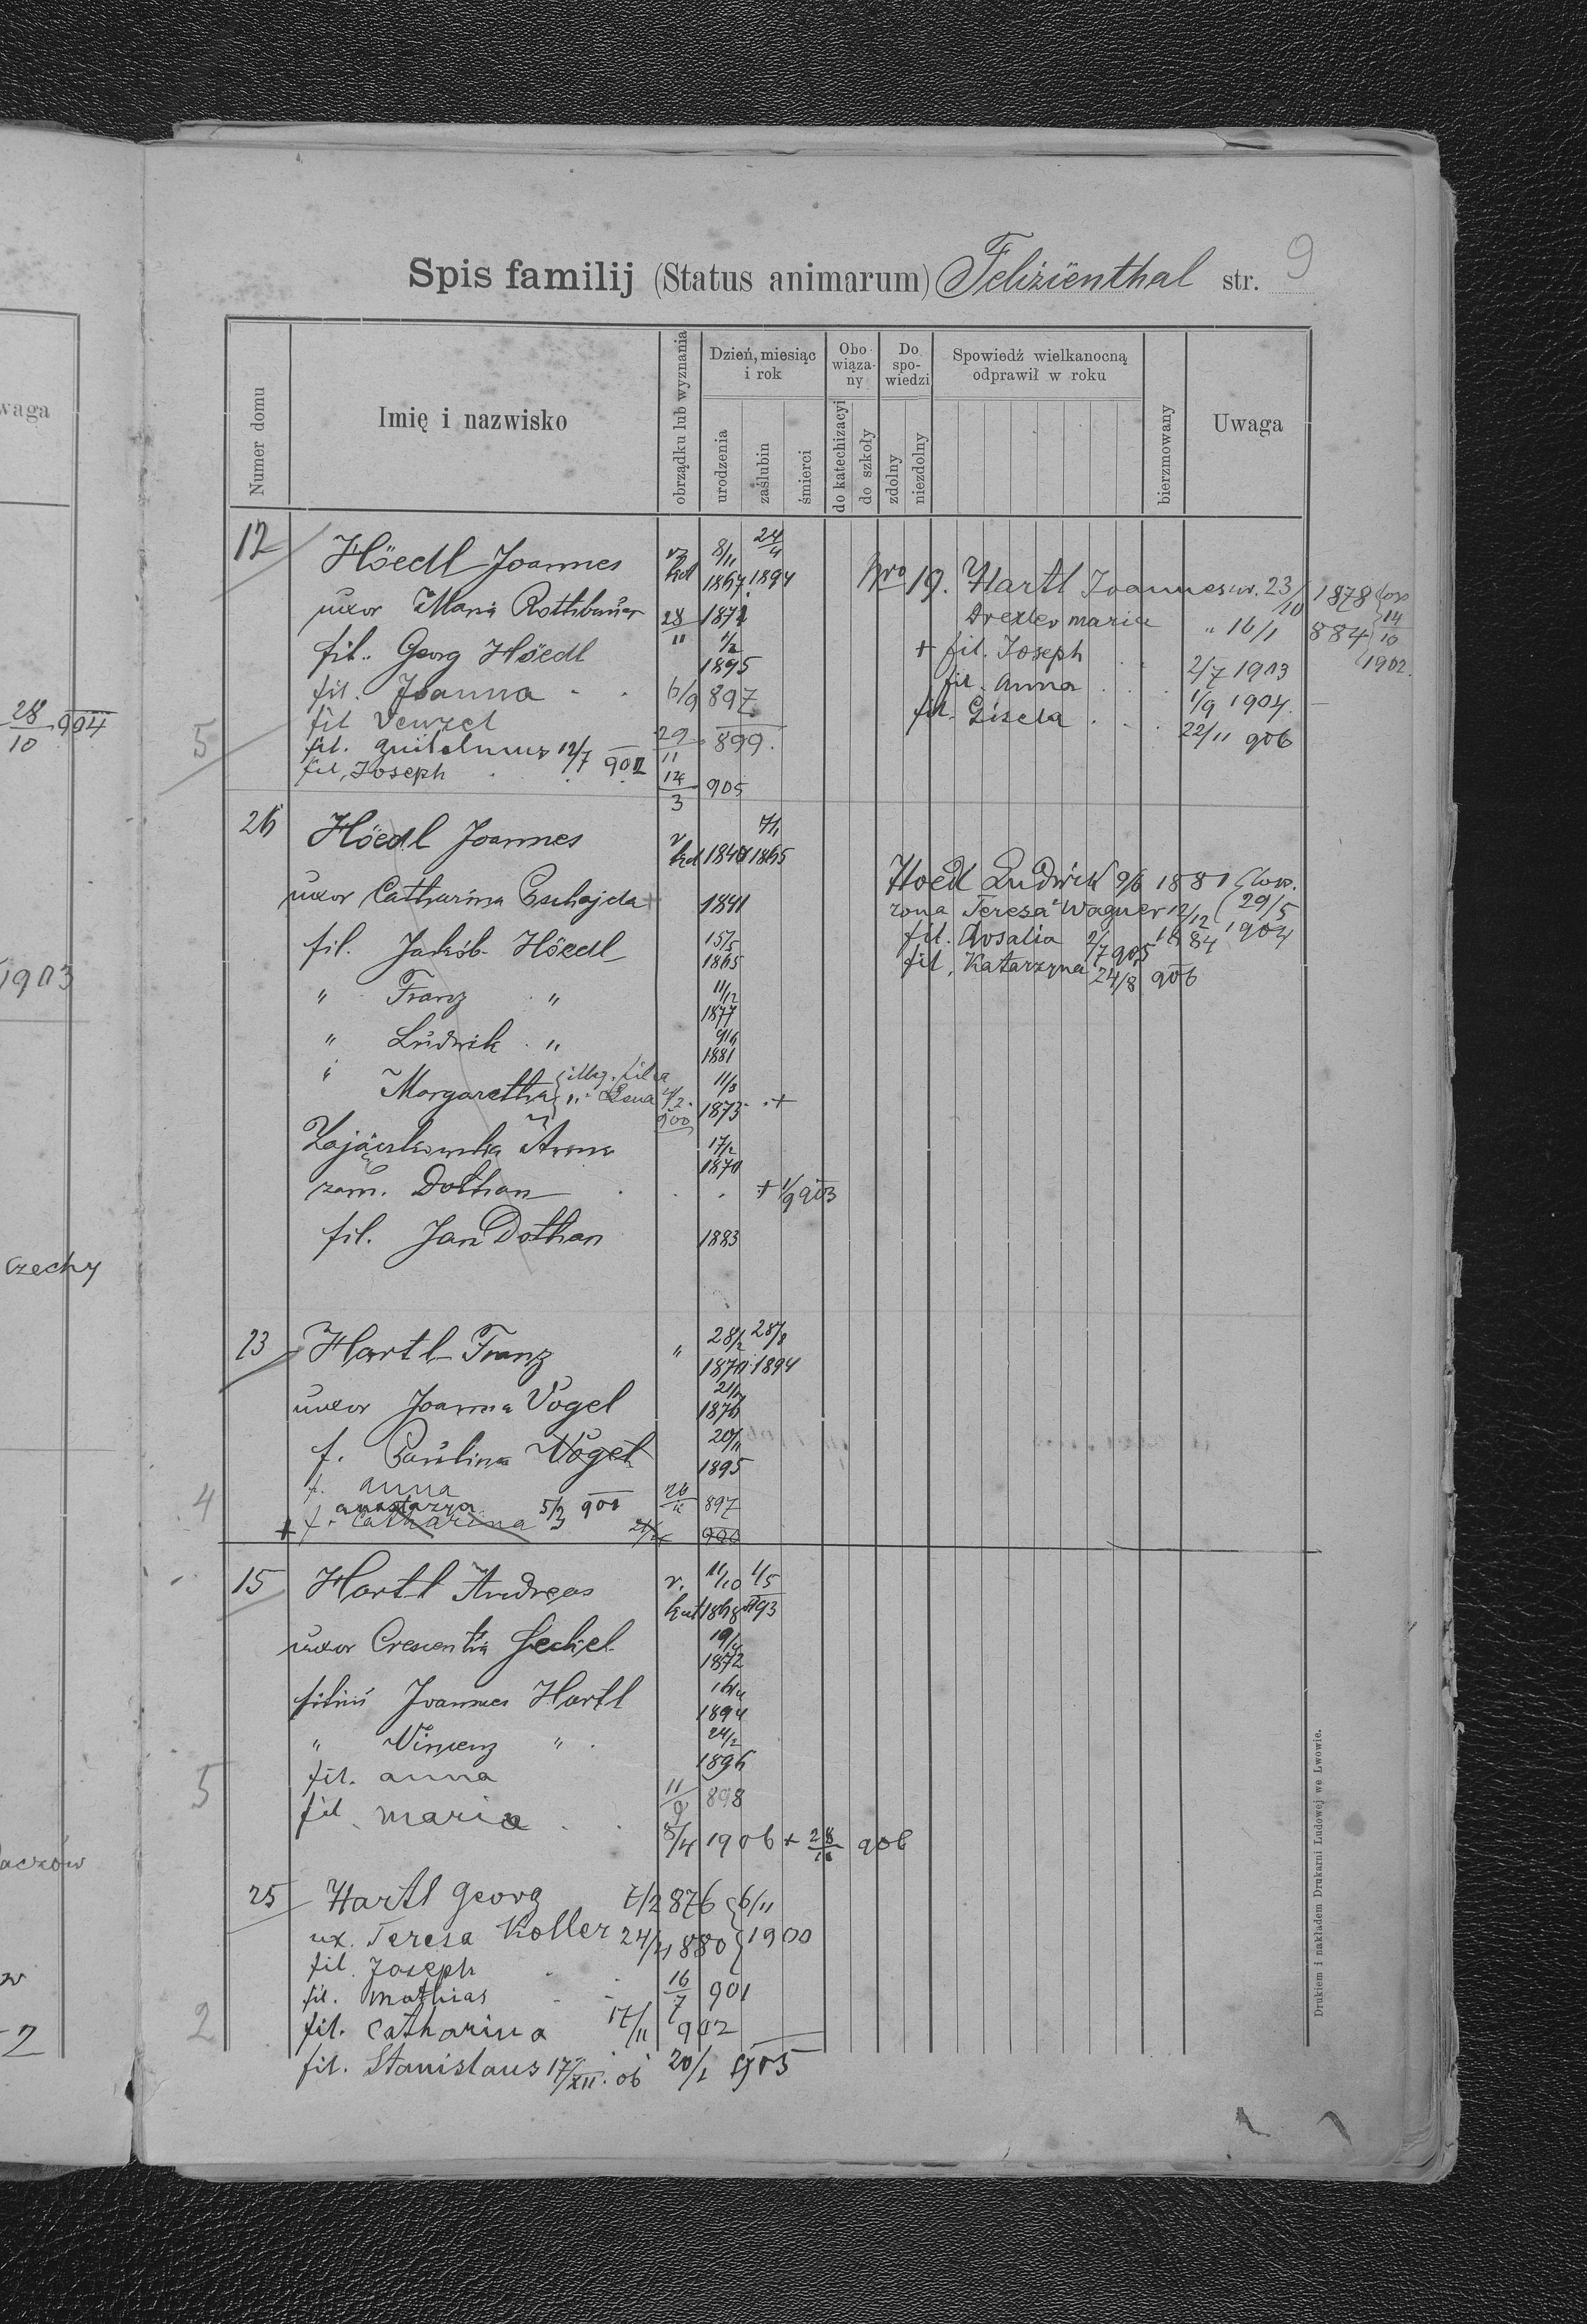 waga
28/10 904
1903
Czechy
2
9
Spis familij (Status animarum) Felizienthal str.
Numer domu
Imię i nazwisko
obrządku lub wyznania
Dzień, miesiąc i rok
urodzenia
zaślubin
śmierci
Obowiązany
do katechizacyi
do szkoły
Do spowiedzi
zdolny
niezdolny
Spowiedź wielkanocną odprawił w roku
bierzmowany
Uwaga
12 Höedl Joannes 8/11 1867 24/4 1894
uxor Maria Rothbauer 28/11 1872
fil. Georg Höedl 1/2 1895
fil. Joanna 6/9 897
fil Venzel 29/11 899
5
fil. Guilelmus 12/7 902
fil, Joseph 14/3 905
Nro 19. Hartl Joannes ur. 23/10 1878
Drexler maria " 16/1 884 14/10 1902
+ fil. Joseph 2/7 1903
fil. Anna 1/9 1904
fil. Gisela 22/11 906
26 Höedl Joannes 1840 1865
uxor Catharina 1841
fil. Jakób Höedl 15/5 1865
" Franz " 11/12 1877
" Ludwik " 9/6 1881
" Margaretha { illeg. filia 11/3 1873 +
" Lena 900
Anna 17/2 1870
zam. Dothan + 1/9 903
fil. Jan Dothan 1883
Hoedl Ludwik 9/6 1881
zona Teresa Wagner 12/12 1884 29/5 1904
fil. Rosalia 2/7 905
fil, Katarzyna 24/8 906
13 Hartl Franz " 28/2 1870 28/8 1894
uxor Joanna Vogel 1876
f. Paulina Vogel 20/11 1895
f. Anna 26/11 897
4
f anastazya 5/3 901
+ f. Catharina 900
15 Hartl Andreas r. kat 11/10 1868 1/5 893
uxor Crescentia Seckel 1872
filius Joannes Hartl 1894
" Vincenz " 24/2 1896
fil. anna 11/9 898
5
fil. maria 8/4 1906 + 28/11 906
25 Hartl Georg 7/2 876 6/11
ux. Teresa Koller 24/4 880 1900
fil. Joseph 16/7 901
fil. Mathias 17/11 902
2
fil. Catharina 20/1 905
fil. Stanislaus 17/XII. 06
Drukiem i nakładem Drukarni Ludowej we Lwowie.